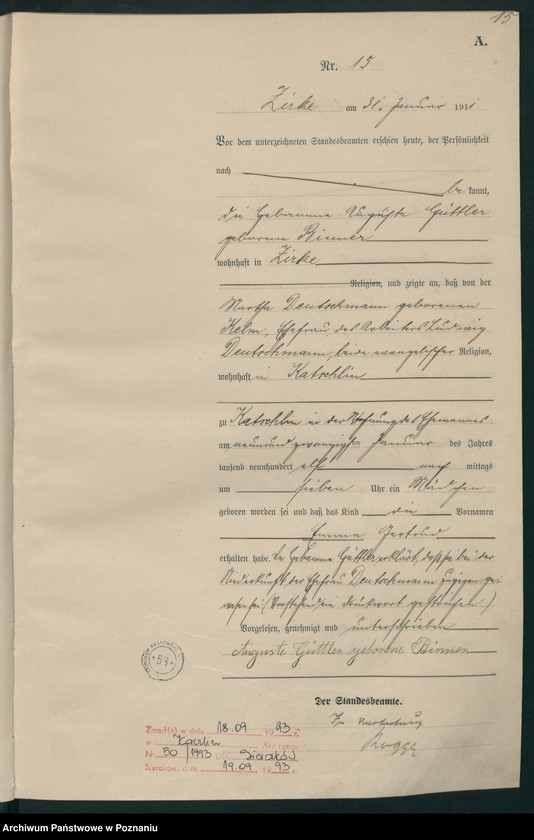 15
A.
Nr. 15
Zirke am 31. Januar 1911.
Vor dem unterzeichneten Standesbeamten erschien heute, der Persönlichkeit
nach be kannt,
die Hebamme Auguste Güttler
geborene Binner
wohnhaft in Zirke
Religion, und zeigte an, daß von der
Martha Deutschmann geborenen
Kelm, Ehefrau des Arbeiters Ludwig
Deutschmann, beide evangelischer Religion,
wohnhaft in Katschlin
zu Katschlin in der Wohnung des Ehemannes
am neunundzwanzigsten Januar des Jahres
tausend neunhundert elf nach mittags
um sieben Uhr ein Mädchen
geboren worden sei und daß das Kind die Vornamen
Emma Gertrud
erhalten habe. Die Hebamme Güttler erklärt, daß sie bei der
Niederkunft der Ehefrau Deutschmann zugegen ge-
wesen sei (Vorstehend ein Druckwort gestrichen)
Vorgelesen, genehmigt und unterschrieben
Auguste Güttler geborene Binner
Der Standesbeamte.
In Vertretung
53
Zmarł(a) w dniu 18.09 1993 r.
w Kaczlin Akt zgonu
Nr 50/1993 USC Sieraków
Sieraków, dnia 19.09 1993 r.
Archiwum Państwowe w Poznaniu